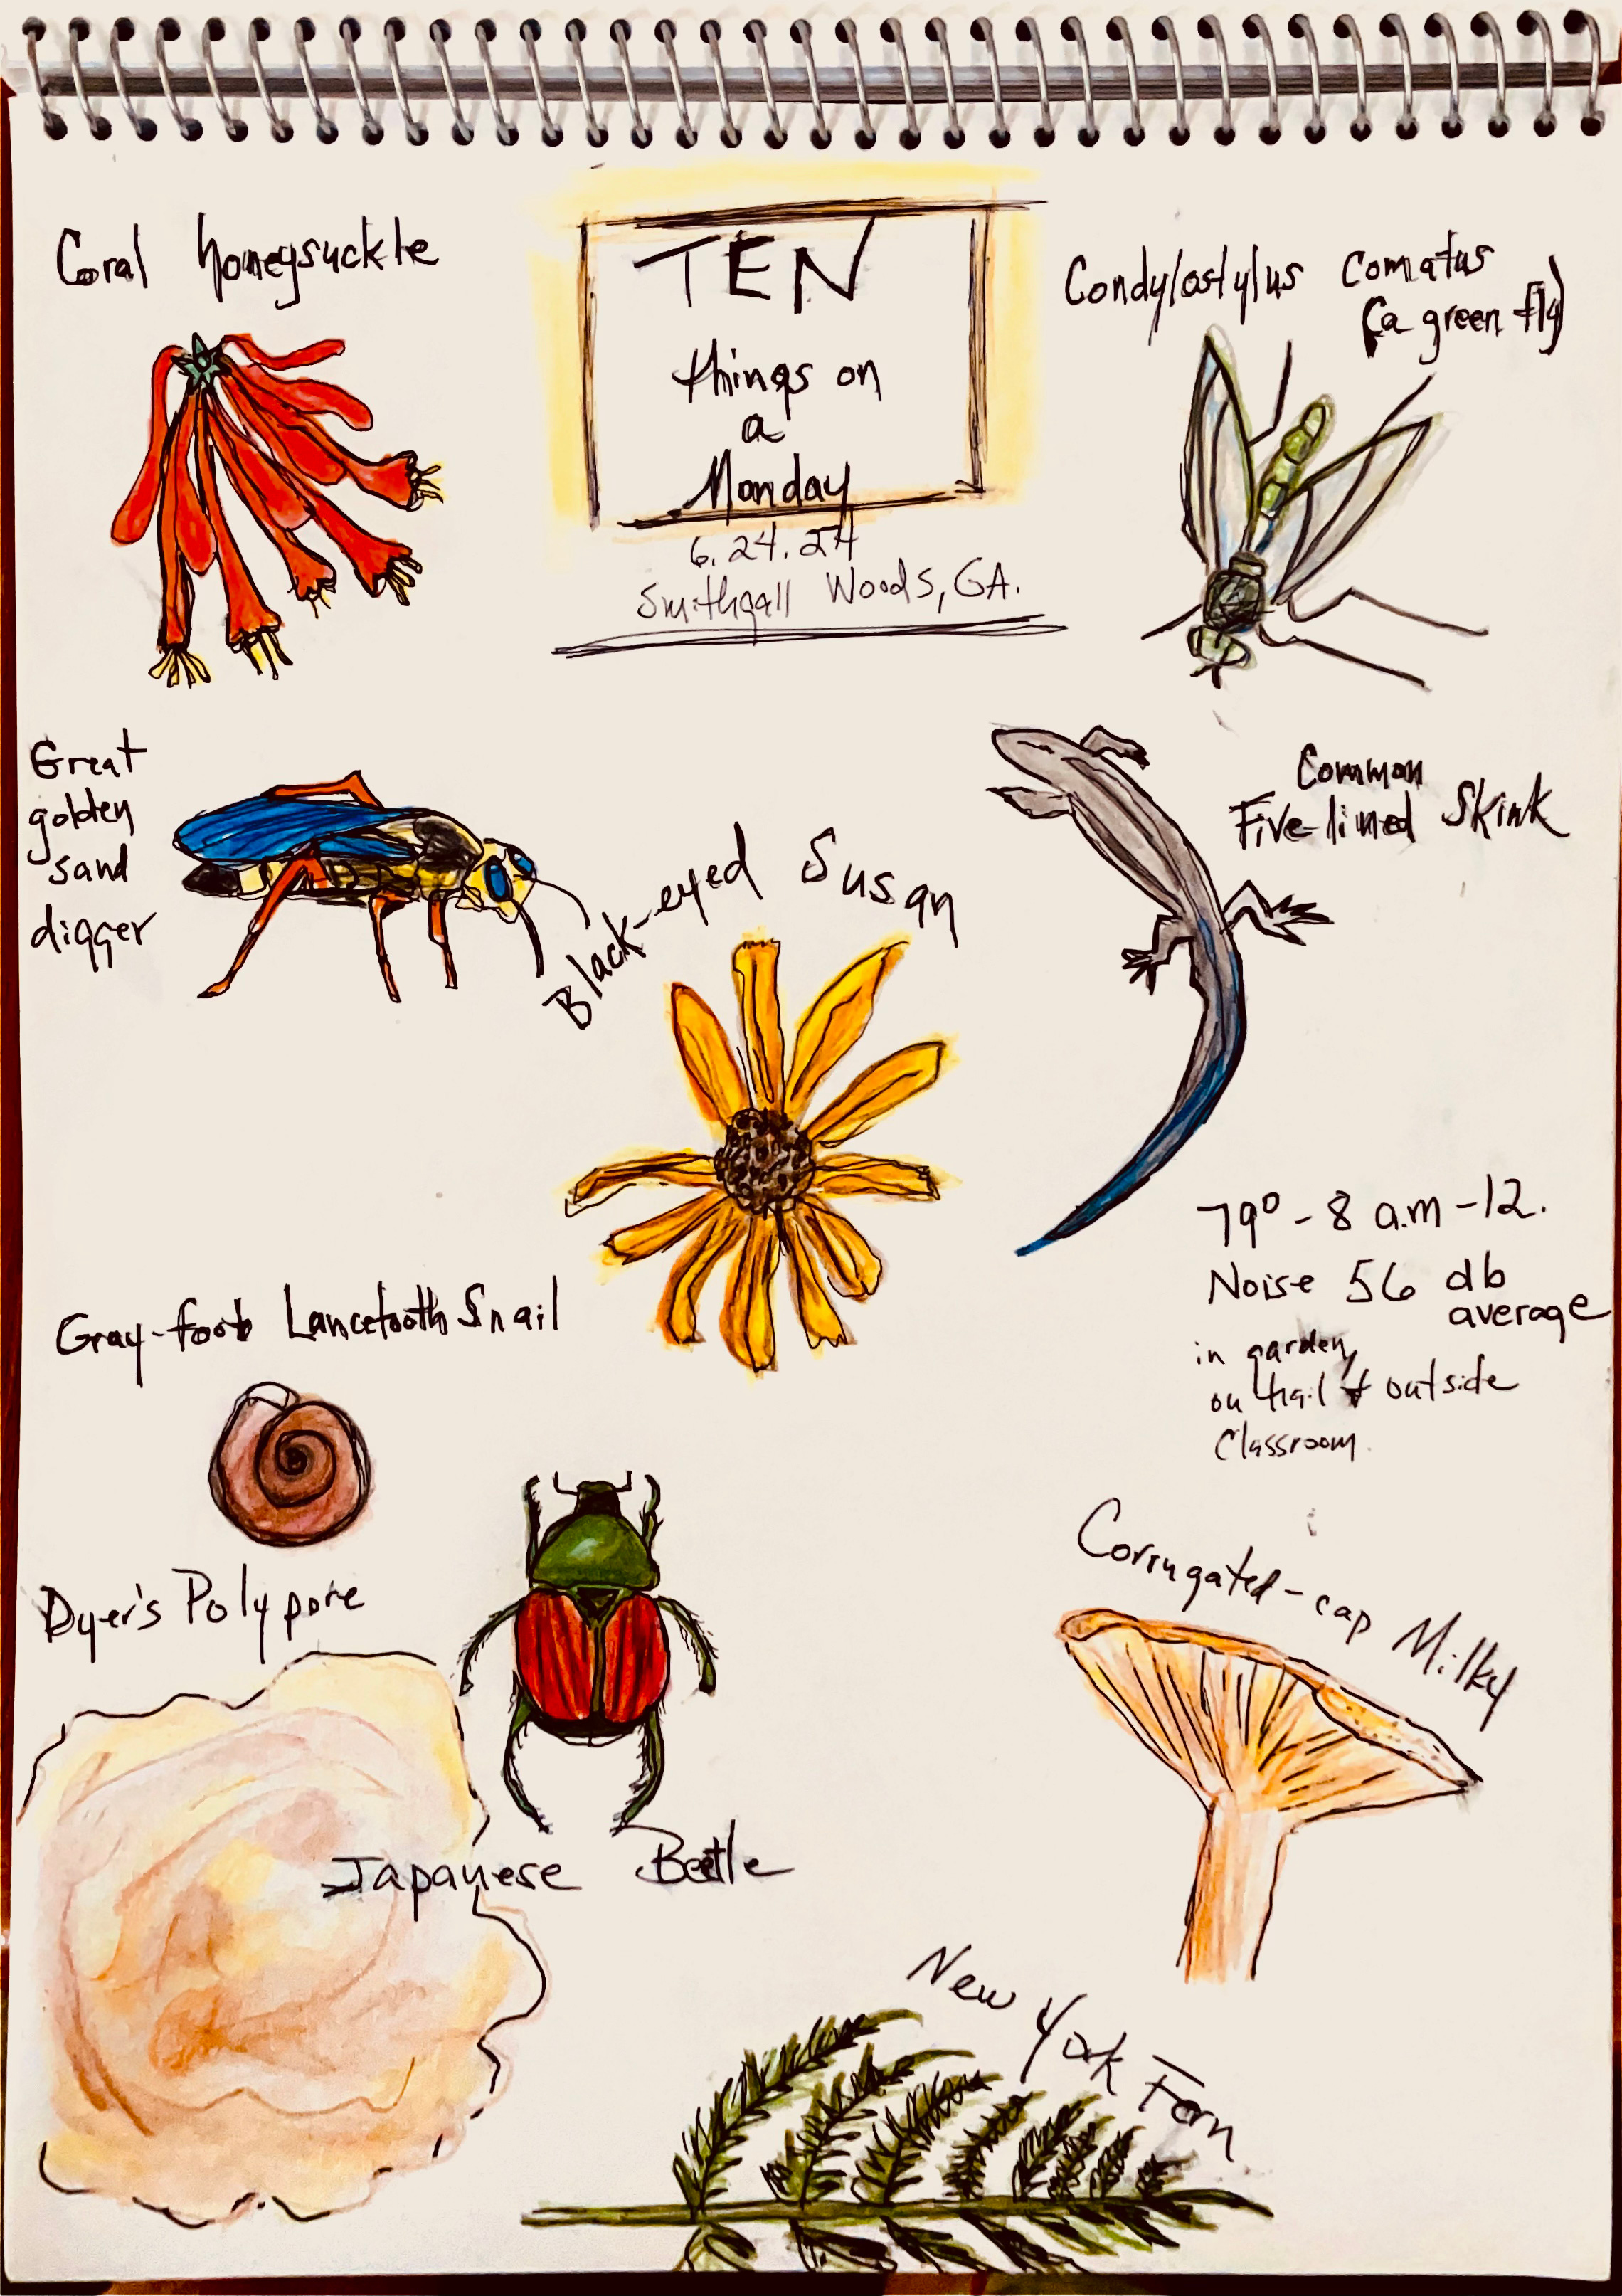 Coral honeysuckle
TEN
things on
a
Monday
6.24.24
Smithgall Woods, GA.
Condylostylus comatus
(a green fly)
Great
golden
sand
digger
Black-eyed Susan
Common
Five-lined Skink
79° - 8 a.m - 12.
Noise 56 db
average
in garden,
on trail & outside
Classroom.
Gray-foot Lancetooth Snail
Dyer's Polypore
Japanese Beetle
Corrugated-cap Milky
New York Fern